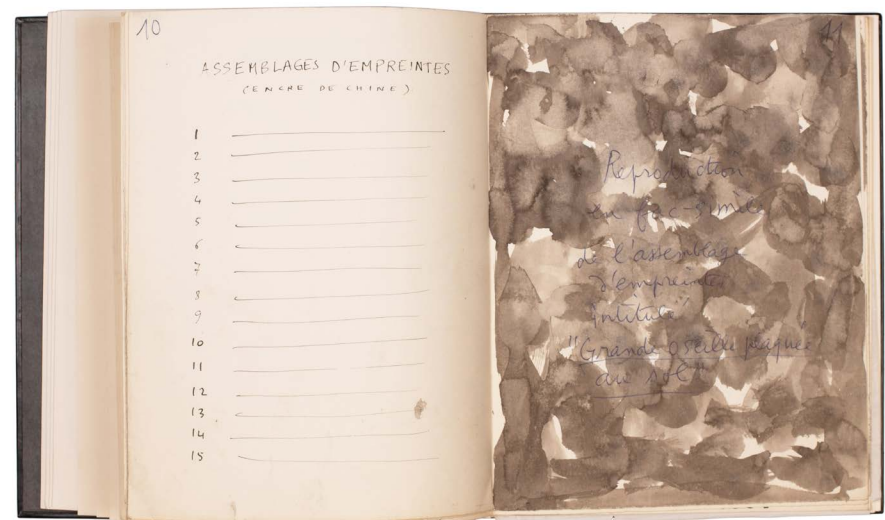 10
ASSEMBLAGES D'EMPREINTES
(ENCRE DE CHINE)
1
2
3
4
5
6
7
8
9
10
11
12
13
14
15
11
Reproduction
en fac-simile
de l'assemblage
d'empreintes
intitulé
"Grande oseille plaquée
au sol"